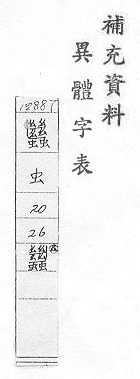 補充資料
異體字表
12887
虫
20
26